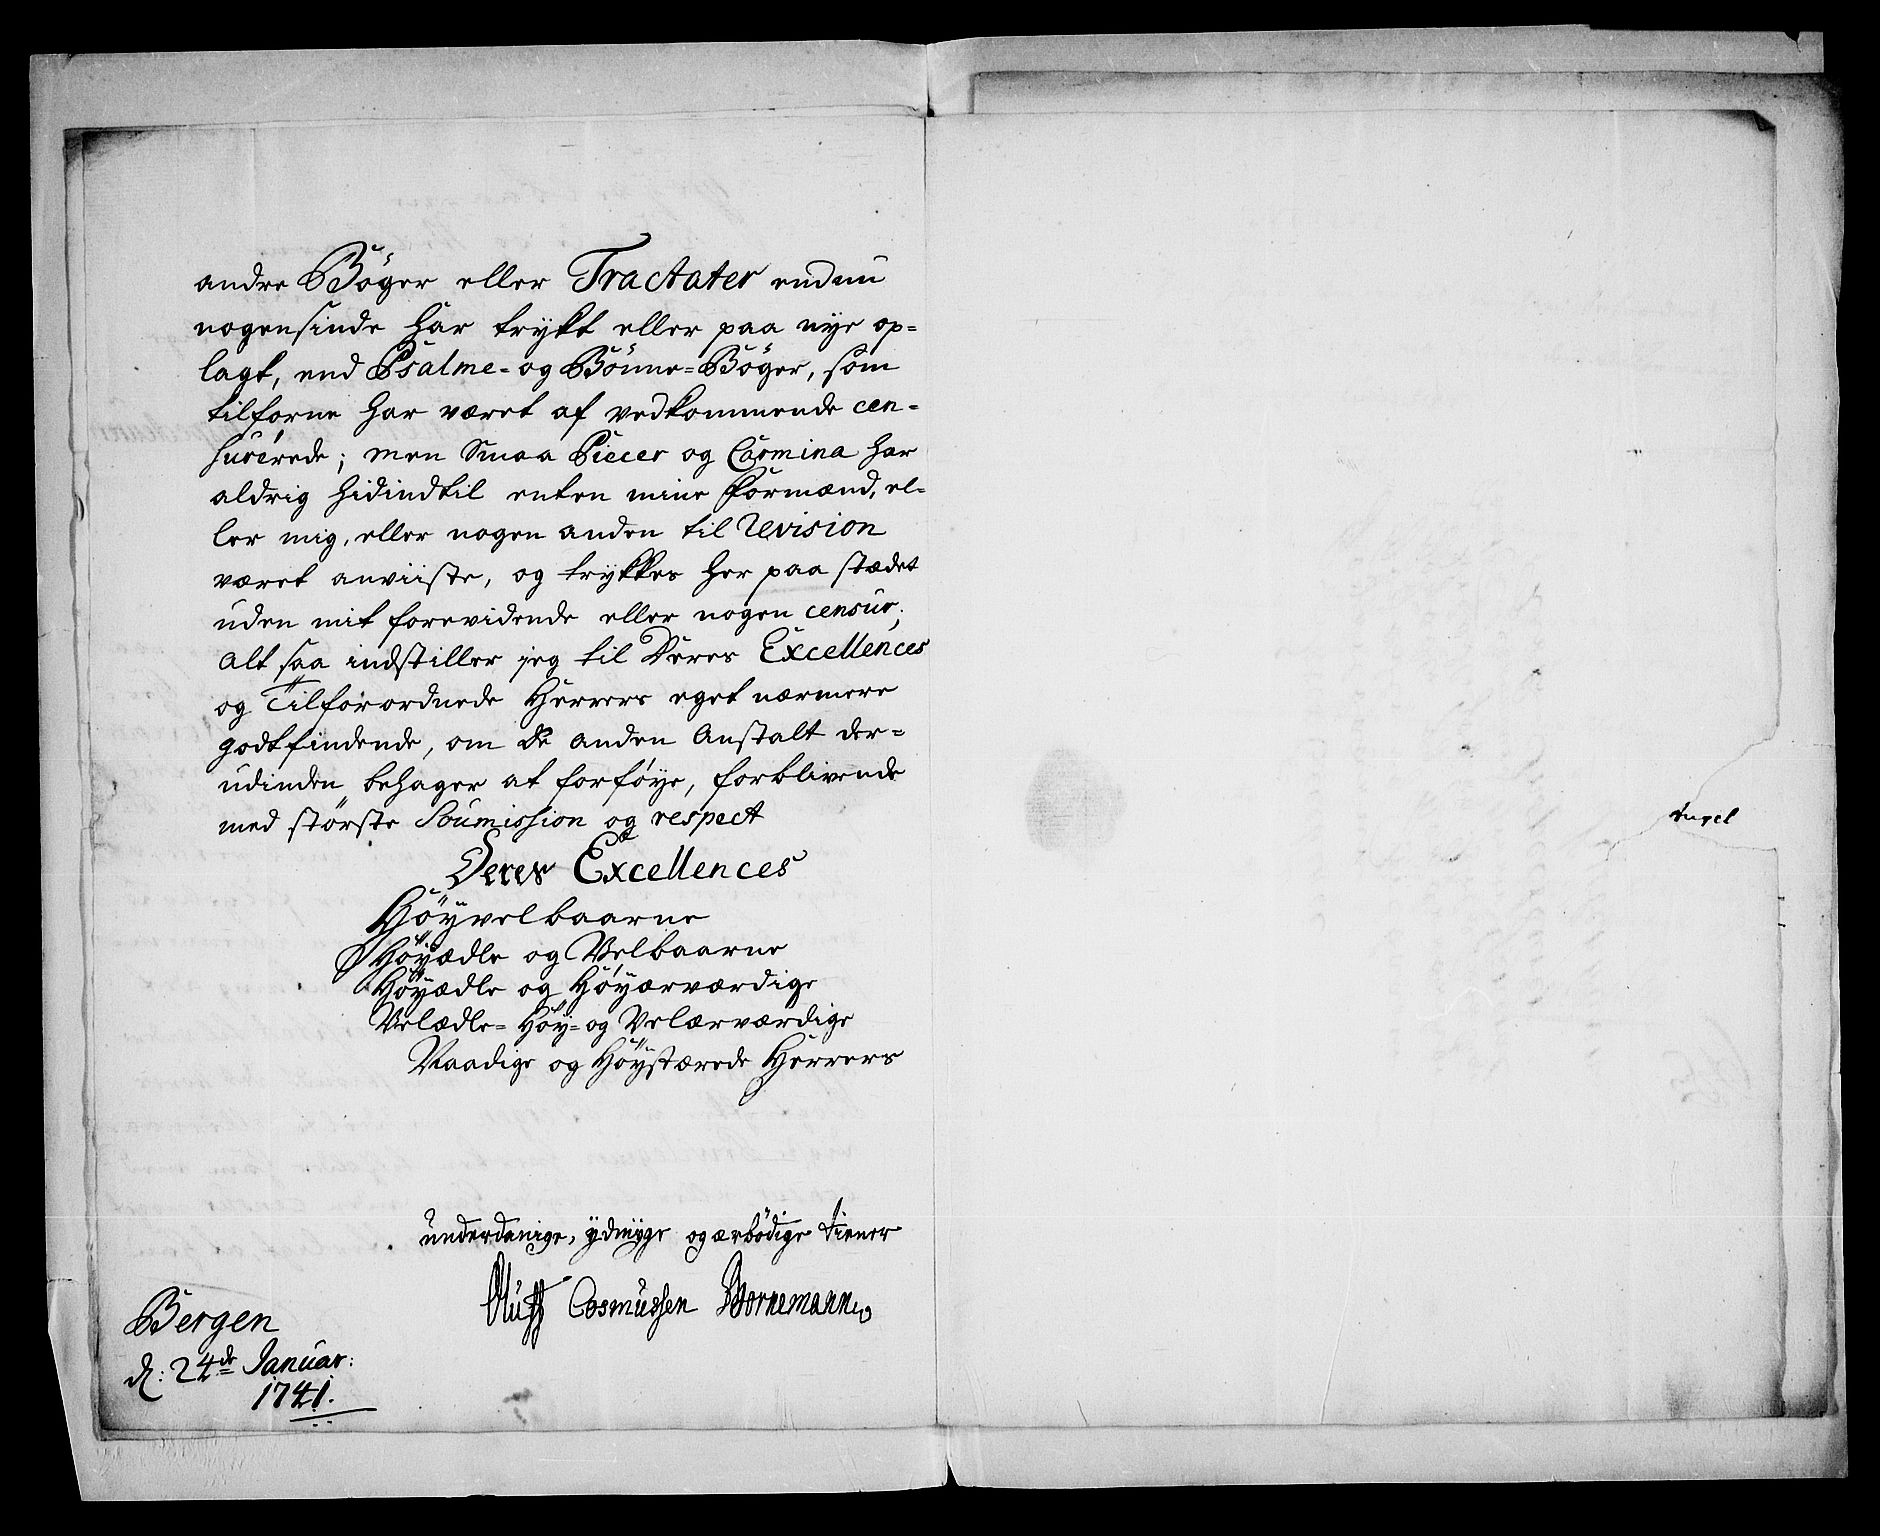 andre Bøger eller Tractater endnu
nogensinde har trykt eller paa nye op=
lagt, end Psalme= og Bønne=Bøger, som
tilforne har været af vedkommende cen=
surerede; men Smaa Piecer og Carmina har
aldrig hidindtil enten mine Formænd, el=
ler mig, eller nogen anden til Revision
været anviiste, og trykkes her paa stædet
uden mit forevidende eller nogen censur;
Alt saa indstiller jeg til Deres Excellences
og Tilforordnede Herrers eget nærmere
godtfindende, om de anden Anstalt der=
udinden behager at forføye, forblivende
med største Soumission og respect
Deres Excellences
Høyvelbaarne
Høyædle og Velbaarne
Høyædle og Høyærværdige
Velædle= Høy= og Velærværdige
Naadige og Høystærede Herrers
underdanige, ydmyge og ærbødige tiener
Oluff Cosmussen Bornemann
Bergen
d: 24de Januar:
1741.